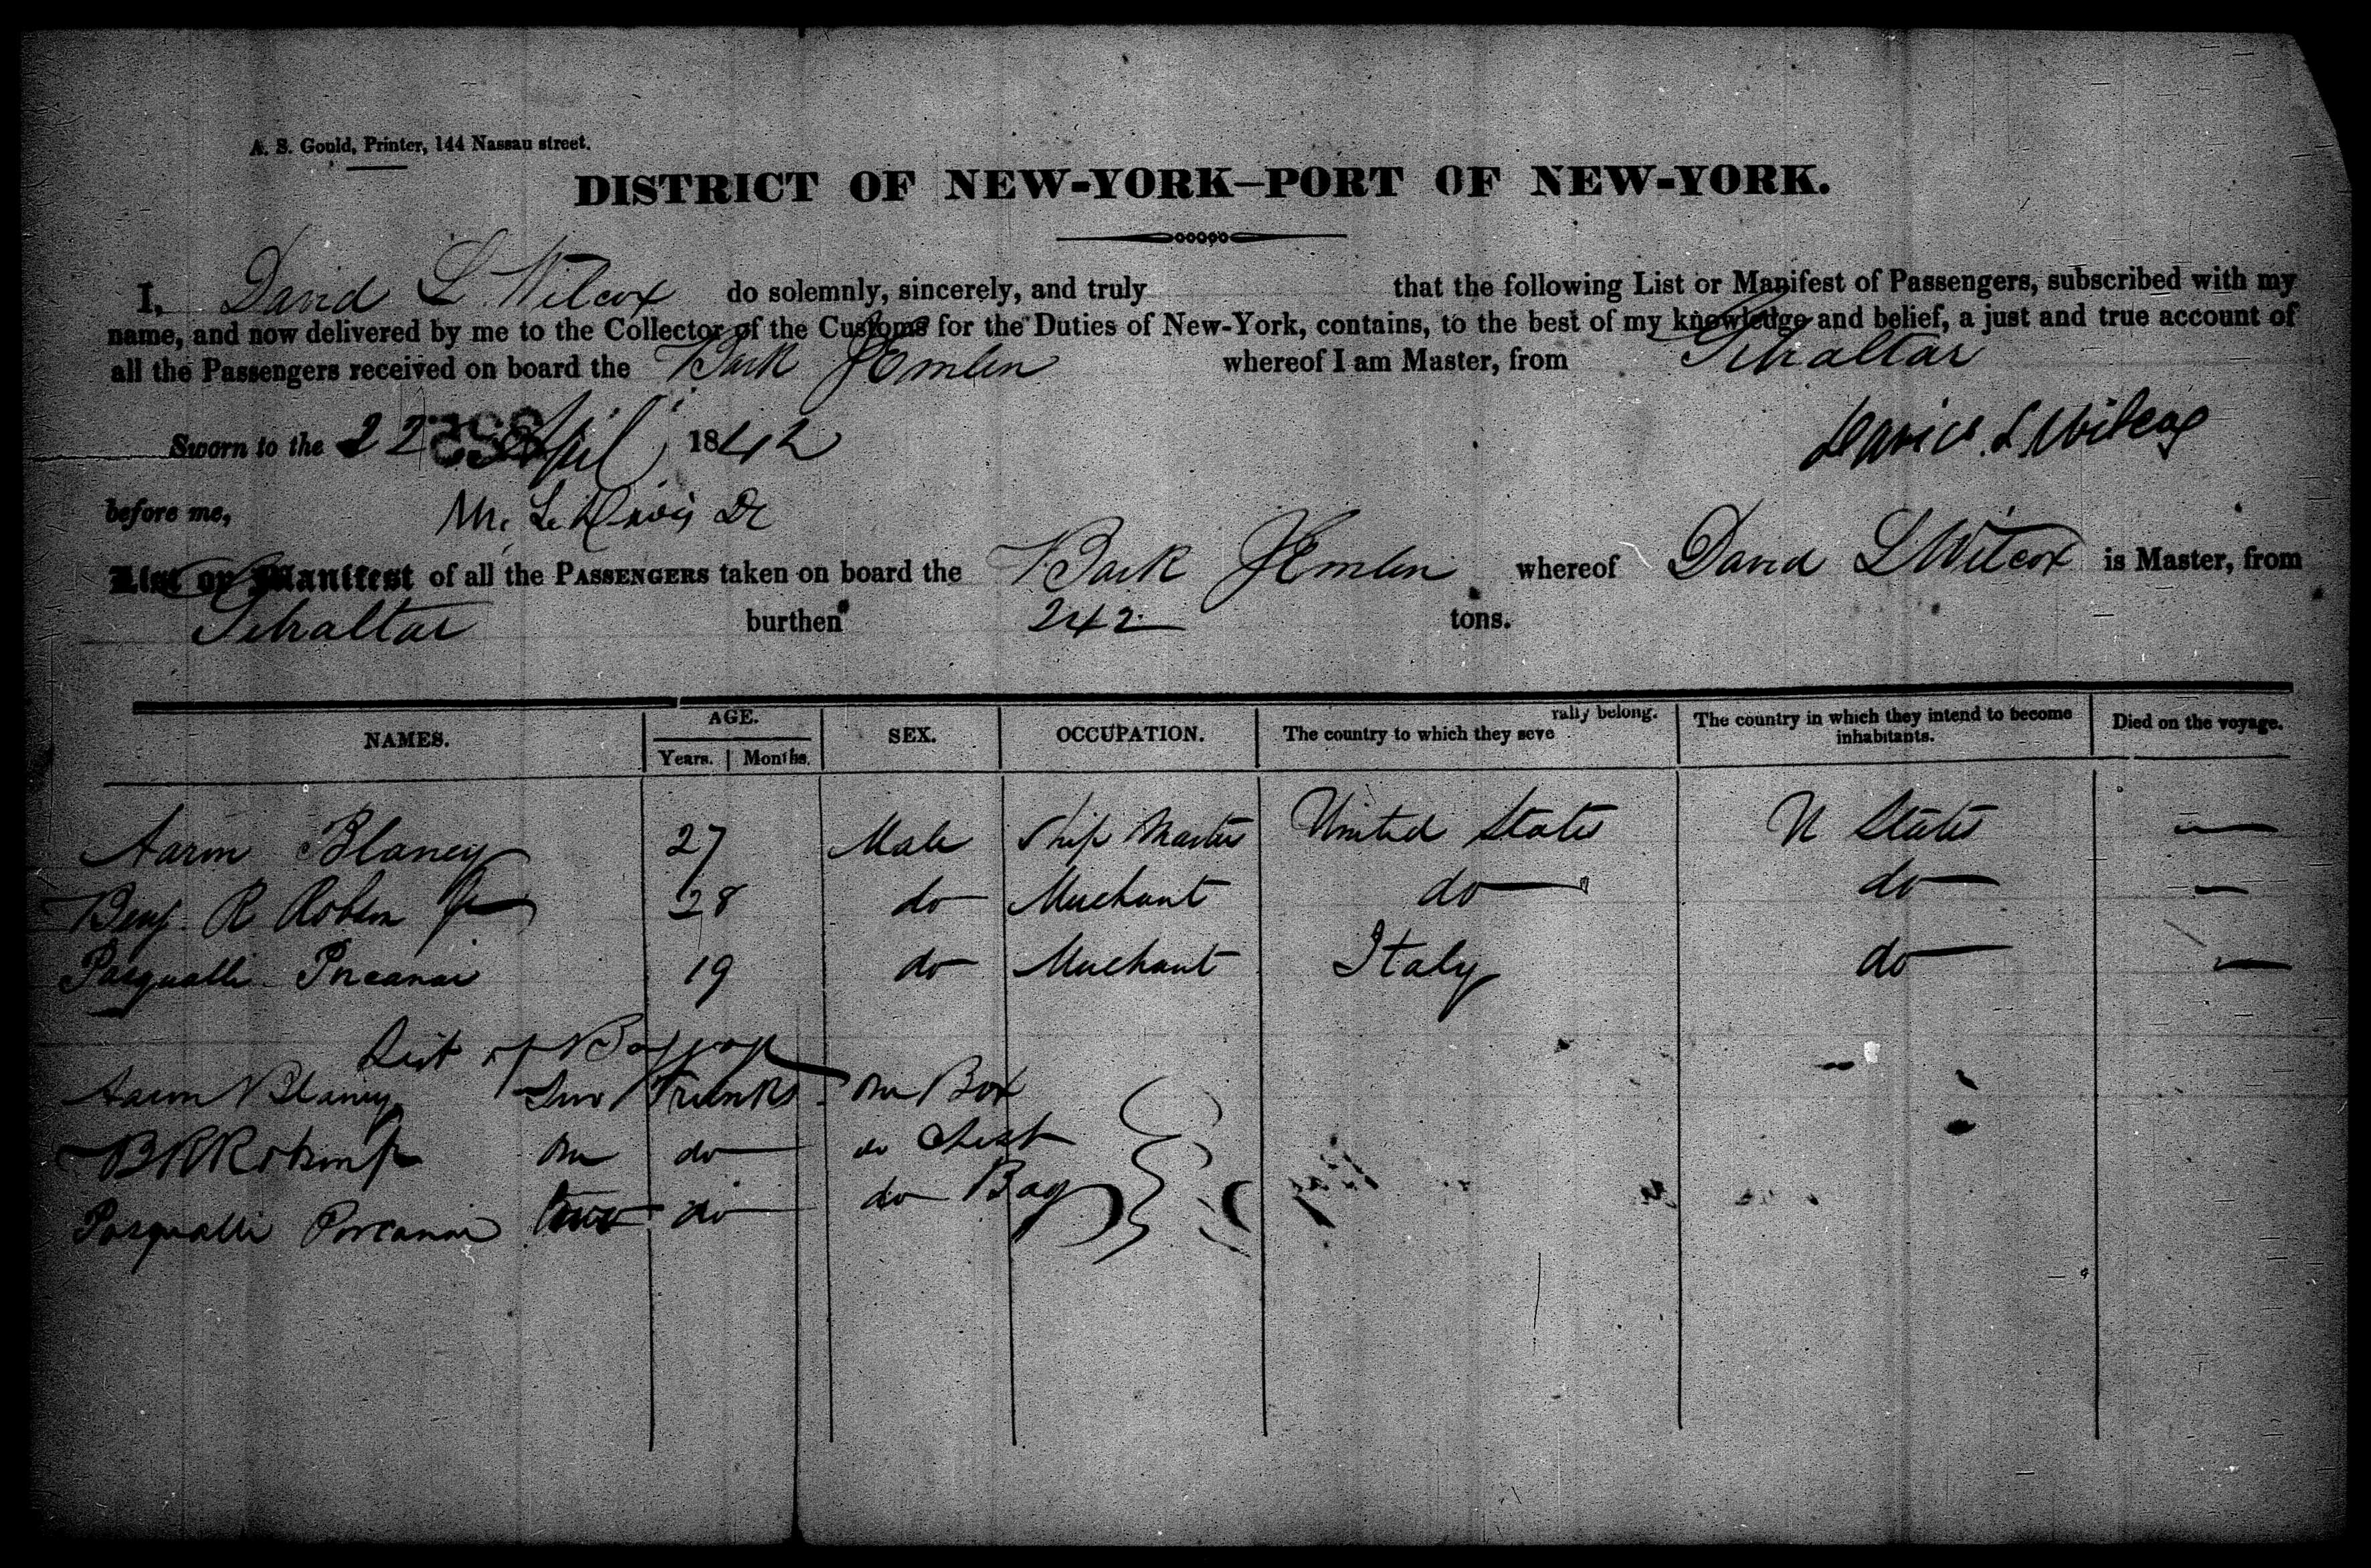 A. S. Gould, Printer, 144 Nassau street.
DISTRICT OF NEW-YORK—PORT OF NEW-YORK.
I, David L. Wilcox do solemnly, sincerely, and truly that the following List or Manifest of Passengers, subscribed with my
name, and now delivered by me to the Collector of the Customs for the Duties of New-York, contains, to the best of my knowledge and belief, a just and true account of
all the Passengers received on board the Bark Emlen whereof I am Master, from Gibraltar
Sworn to the 22 April 1842 David L Wilcox
before me,
List or Manifest of all the PASSENGERS taken on board the Bark Emlen whereof David L Wilcox is Master, from
Gibraltar burthen 242 tons.
NAMES. AGE. Years. Months. SEX. OCCUPATION. The country to which they severally belong. The country in which they intend to become inhabitants. Died on the voyage.
Aaron Blaney 27 Male Ship Master United States U States —
Benj. R 28 do Merchant do do —
Pasqualli 19 do Merchant Italy do —
List of Baggage
Aaron Blaney Two Trunks one Box
B R one do do Chest
Pasqualli two do do Bag